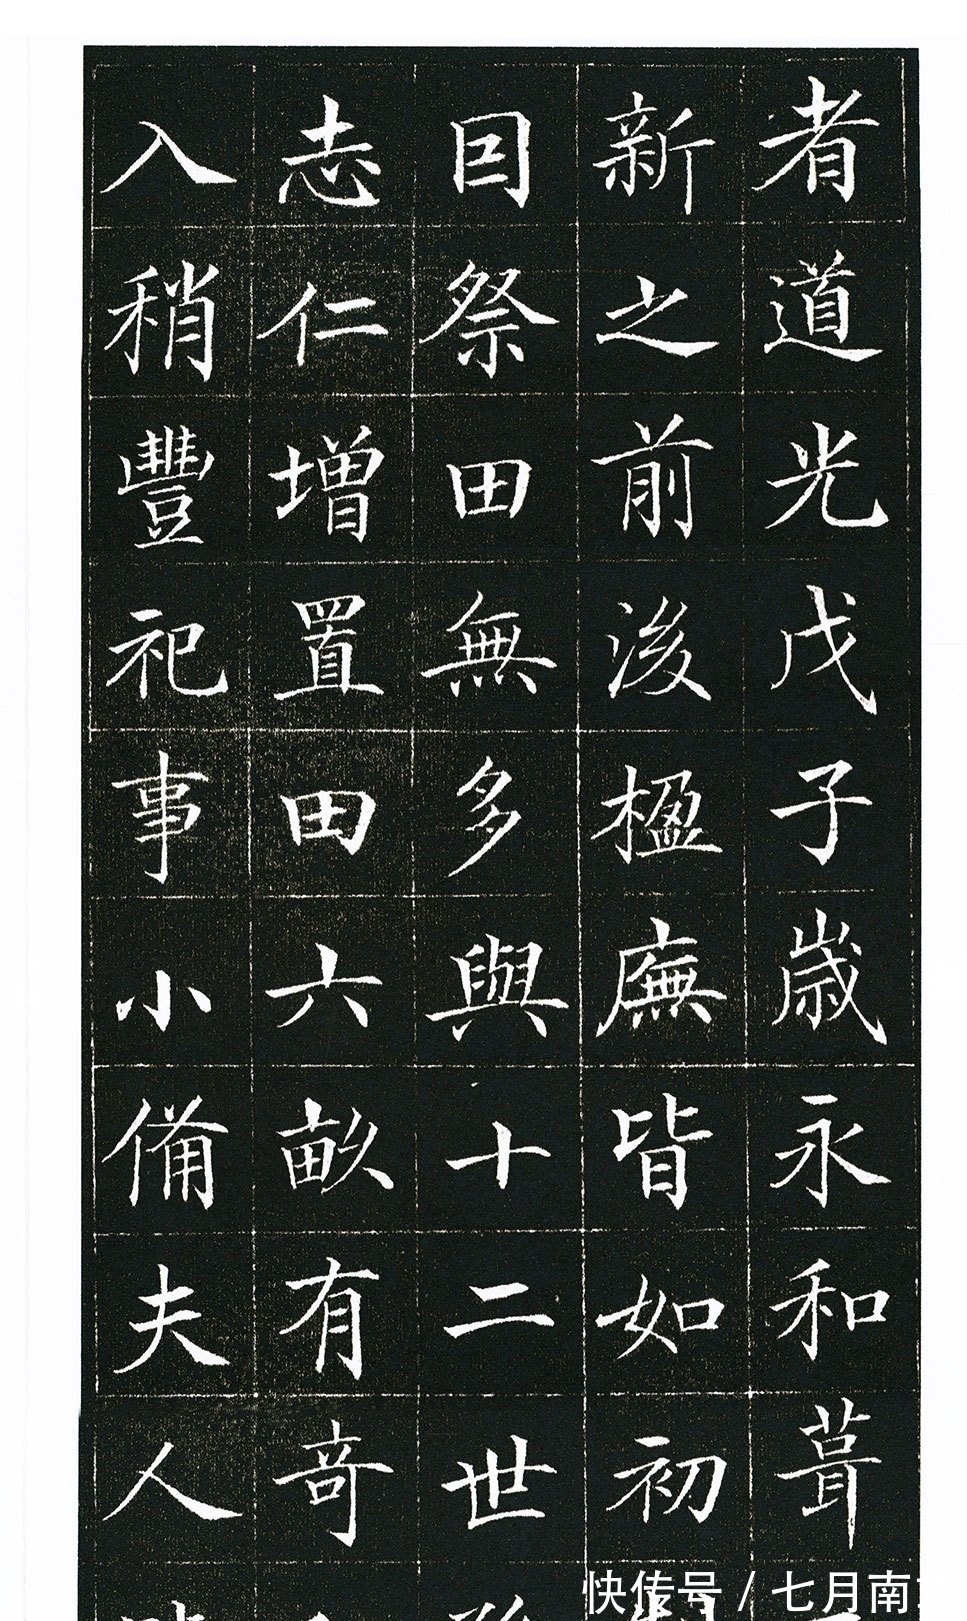 者道光戊子歲永和葺
新之前後楹廡皆如初
囙祭田無多與十二世
志仁增置田六畝有竒
入稍豐祀事小備夫人
快传号 / 七月南